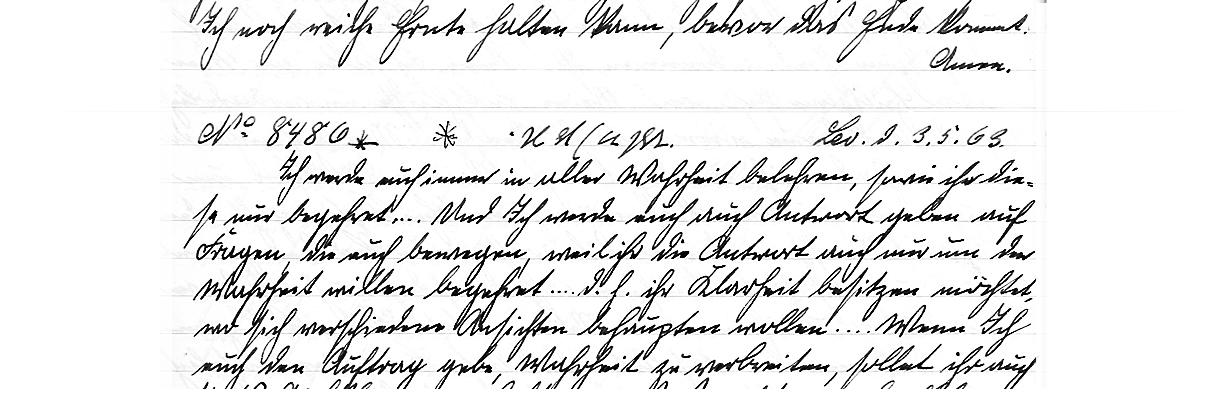 Ich noch reiche Ernte halten kann, bevor das Ende kommt.
Amen.
No 8486* * Lev. d. 3.5.63.
Ich werde euch immer in aller Wahrheit belehren, sowie ihr die-
se nur begehret.... Und Ich werde euch auch Antwort geben auf
Fragen, die euch bewegen, weil ihr die Antwort auch nur um der
Wahrheit willen begehret .... d. h. ihr Klarheit besitzen möchtet,
wo sich verschiedene Ansichten behaupten wollen .... Wenn Ich
euch den Auftrag gebe, Wahrheit zu verbreiten, sollet ihr auch